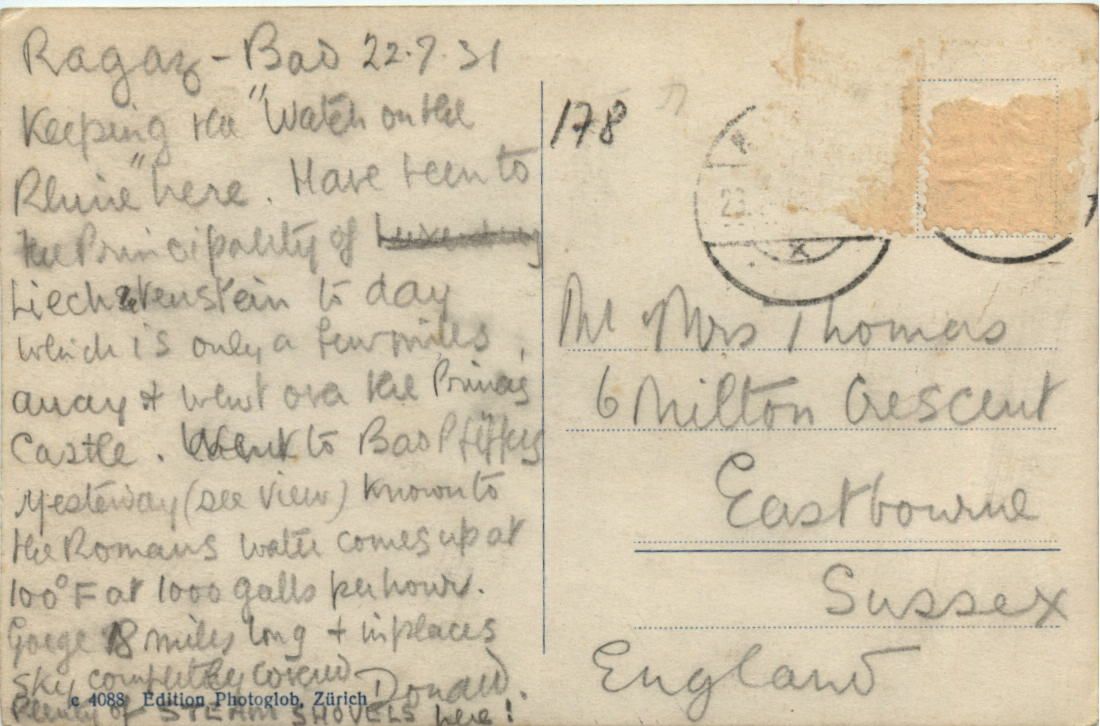 Ragaz - Bad 22.7.31
Keeping the "Watch on the
Rhine" here. Have been to
the Principality of
Liechtenstein to day
which is only a few miles
away & went over the Princes
Castle. Went to Bad Pfäffers
yesterday (see view) known to
the Romans water comes up at
100°F at 1000 galls per hour.
Gorge 18 miles long & in places
sky completely covered
Donald.
Plenty of STEAM SHOVELS here!
c 4088 Edition Photoglob, Zürich
178
23
x
Mrs Thomas
6 Milton Crescent
Eastbourne
Sussex
England